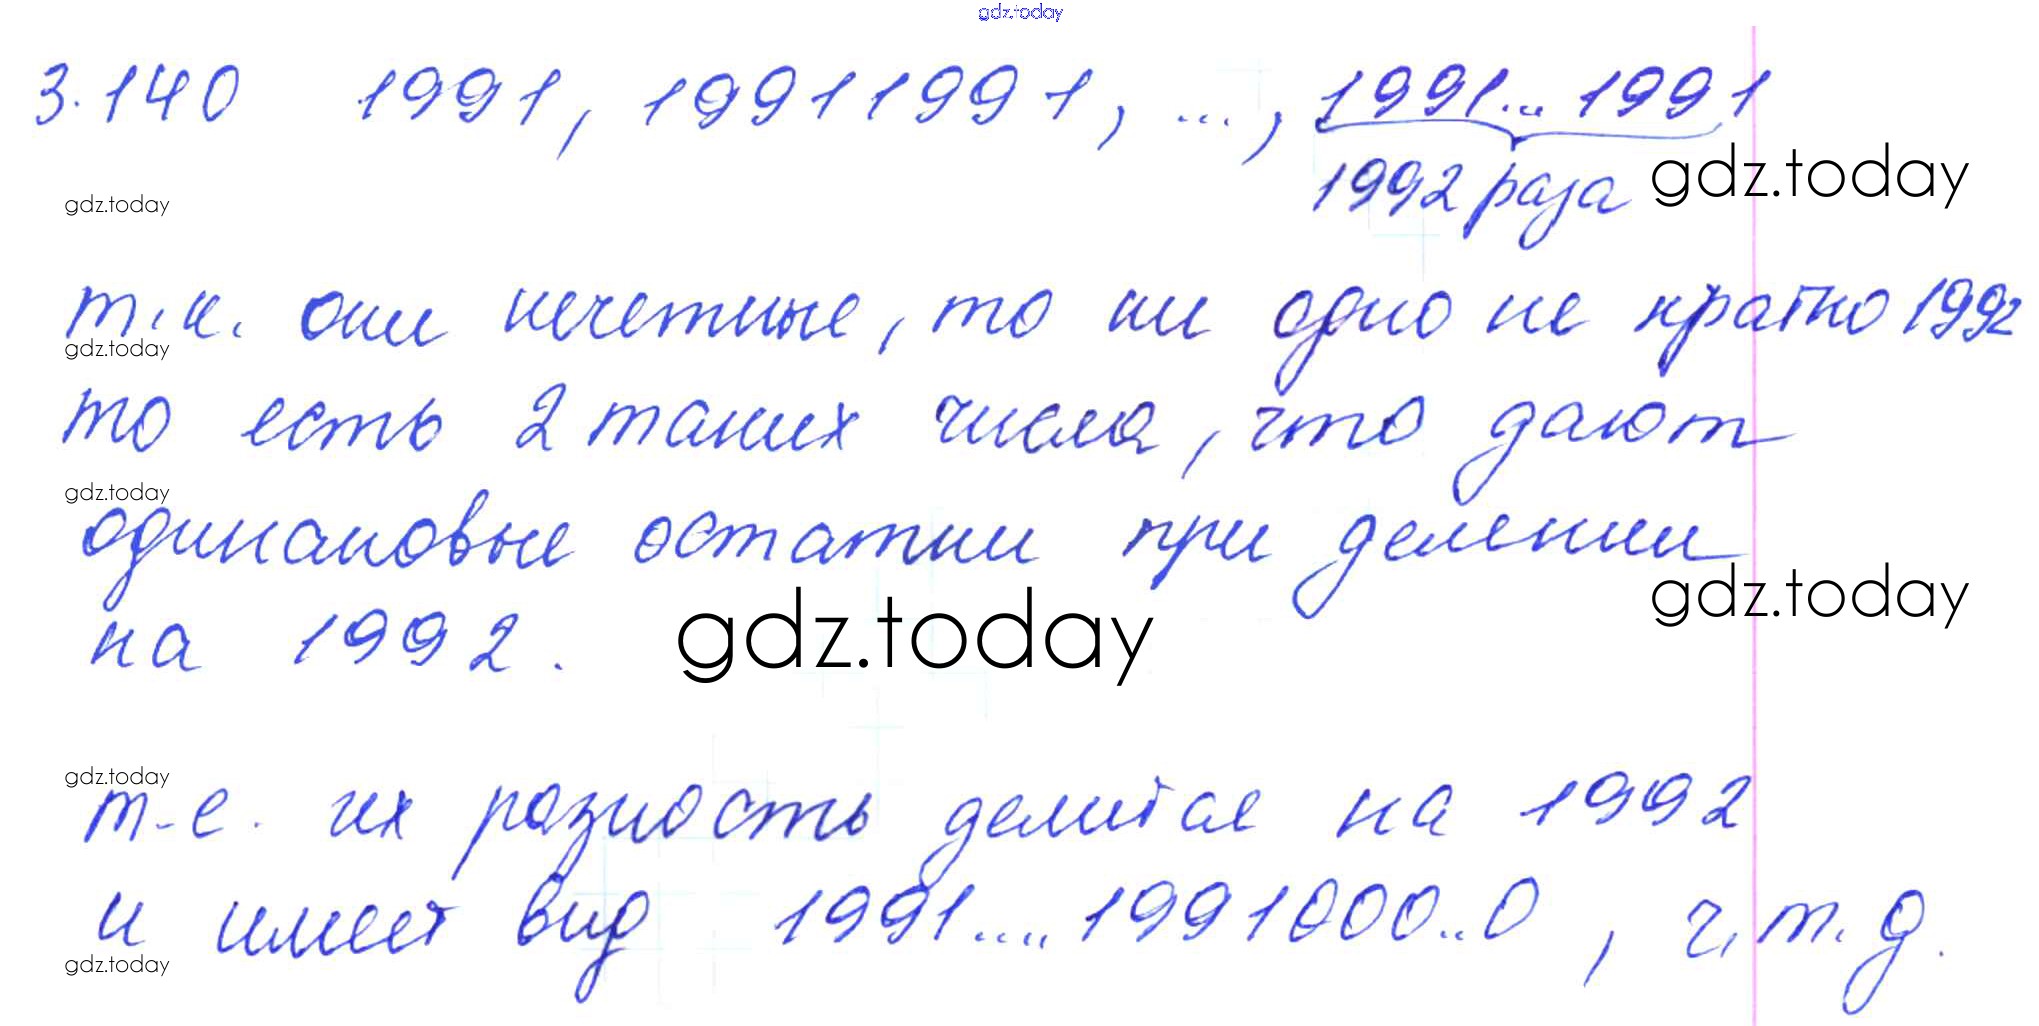 gdz.today
3.140 1991, 19911991, ..., 1991...1991
1992 раза
gdz.today
gdz.today
т.к. они нечетные, то ни одно не кратно 1992
gdz.today
то есть 2 таких числа, что дают
gdz.today
одинаковые остатки при делении
gdz.today
на 1992.
gdz.today
gdz.today
т-е. их разность делится на 1992
и имеет вид 1991....1991000..0, ч.т.д.
gdz.today